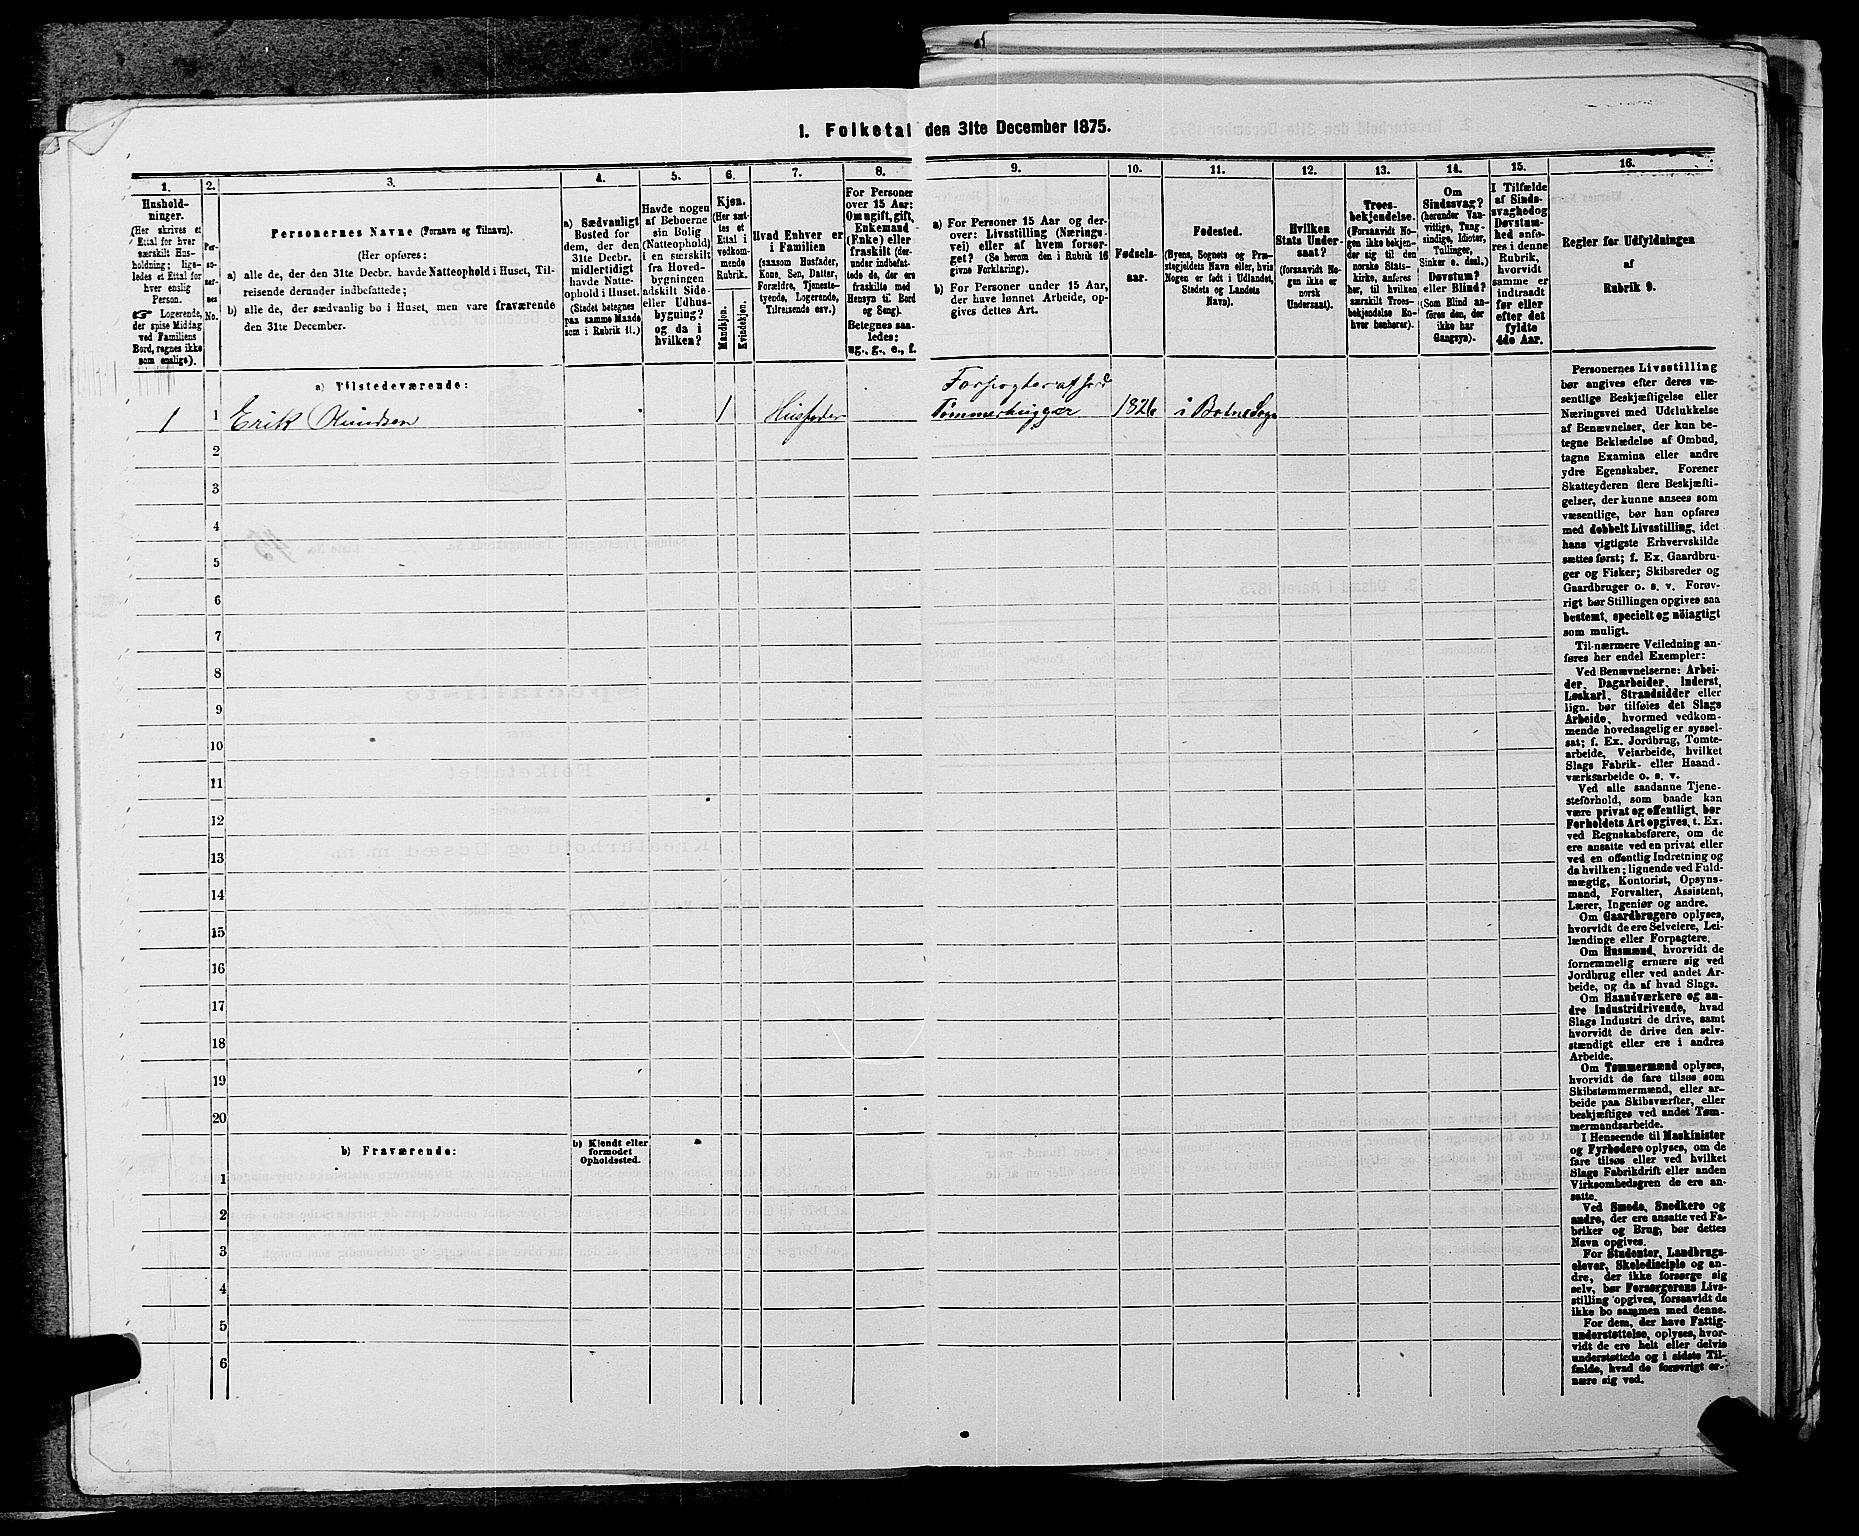 1. Folketal den 31te December 1875.
1.
Hushold-
ninger.
(Her skrives et
Ettal for hver
særskilt Hus-
holdning; lige-
ledes et Ettal for
hver enslig
Person.
☞ Logerende,
der spise Middag
ved Familiens
Bord, regnes ikke
som enslige).
2.
Per-
so-
ner-
nes
No.
3.
Personernes Navne (Fornavn og Tilnavn).
(Her opføres:
a) alle de, der den 31te Decbr. havde Natteophold i Huset, Til-
reisende derunder indbefattede;
b) alle de, der sædvanlig bo i Huset, men vare fraværende
den 31te December.
4.
a) Sædvanligt
Bosted for
dem, der den
31te Decbr.
midlertidigt
havde Natte-
ophold i Huset.
(Stedet betegnes
paa samme Maade
som i Rubrik 11.)
5.
Havde nogen
af Beboerne
sin Bolig
(Natteophold)
i en særskilt
fra Hoved-
bygningen
adskilt Side-
eller Udhus-
bygning?
og da i
hvilken?
6.
Kjøn.
(Her sæt-
tes et
Ettal i
vedkom-
mende
Rubrik.
Mandkjøn.
Kvindekjøn.
7.
Hvad Enhver er
i Familien
(saasom Husfader,
Kone, Søn, Datter,
Forældre, Tjeneste-
tyende, Logerende,
Tilreisende osv.)
8.
For Personer
over 15 Aar:
Om ugift, gift,
Enkemand
(Enke) eller
fraskilt (der-
under indbefat-
tede de, der ere
fraskilte med
Hensyn til Bord
og Seng).
Betegnes saa-
ledes:
ug., g., e., f.
9.
a) For Personer 15 Aar og der-
over: Livsstilling (Nærings-
vei) eller af hvem forsør-
get? (Se herom den i Rubrik 16
givne Forklaring).
b) For Personer under 15 Aar,
der have lønnet Arbeide, op-
gives dettes Art.
10.
Fødsels-
aar.
11.
Fødested.
(Byens, Sognets og Præ-
stegjeldets Navn eller, hvis
Nogen er født i Udlandet,
Stedets og Landets
Navn).
12.
Hvilken
Stats Under-
saat?
(foraavidt No-
gen ikke er
norsk
Undersaat).
13.
Troes-
bekjendelse.
(Forsaavidt No-
gen ikke bekjen-
der sig til den
norske Stats-
kirke, anføres
her, til hvilken
særskilt Troes-
bekjendelse En-
hver henhører).
14.
Om
Sindssvag?
(herunder Van-
vittige, Tung-
sindige, Idioter,
Tullinger,
Sinker o. desl.)
Døvstum?
eller Blind?
(Som Blind an-
føres den, der
ikke har
Gangsyn).
15.
I Tilfælde
af Sinds-
svaghed og
Døvstum-
hed anfø-
res i denne
Rubrik,
hvorvidt
samme er
indtraadt
før eller
efter det
fyldte
4de Aar.
16.
Regler for Udfyldningen
af
Rubrik 9.
a) Tilstedeværende:
Forpagter af Jord
1 1 Erik Knudsen 1 Husfader Tømmerhugger 1826 i Botne Sogn
2
3
4
5
6
7
8
9
10
11
12
13
14
15
16
17
18
19
20
b) Fraværende:
b) Kjendt eller
formodet
Opholdssted.
1
2
3
4
5
6
Personernes Livsstilling
bør angives efter deres væ-
sentlige Beskjæftigelse eller
Næringsvei med Udelukkelse
af Benævnelser, der kun be-
tegne Beklædelse af Ombud,
tagne Examina eller andre
ydre Egenskaber. Forener
Skatteyderen flere Beskjæfti-
gelser, der kunne ansees som
væsentlige, bør han opføres
med dobbelt Livsstilling, idet
hans vigtigste Erhvervskilde
sættes først; f. Ex. Gaardbru-
ger og Fisker; Skibsreder og
Gaardbruger o. s. v. Forøv-
rigt bør Stillingen opgives saa
bestemt, specielt og nöiagtigt
som muligt.
Til nærmere Veiledning an-
føres her endel Exempler:
Ved Benævnelserne: Arbei-
der, Dagarbeider, Inderst,
Løskarl, Strandsidder eller
lign. bør tilføies det Slags
Arbeide, hvormed vedkom-
mende hovedsagelig er syssel-
sat; f. Ex. Jordbrug, Tomte-
arbeide, Veiarbeide, hvilket
Slags Fabrik- eller Haand-
værksarbeide o. s. v.
Ved alle saadanne Tjene-
steforhold, som baade kan
være privat og offentligt, bør
Forholdets Art opgives, t. Ex.
ved Regnskabsførere, om de
ere ansatte ved en privat eller
ved en offentlig Indretning og
da hvilken; lignende ved Fuld-
mægtig, Kontorist, Opsyns-
mand, Forvalter, Assistent,
Lærer, Ingeniør og andre.
Om Gaardbrugere oplyses,
hvorvidt de ere Selveiere, Lei-
lændinge eller Forpagtere.
Om Husmænd, hvorvidt de
fornemmelig ernære sig ved
Jordbrug eller ved andet Ar-
beide, og da af hvad Slags.
Om Haandværkere og an-
dre Industridrivende, hvad
Slags Industri de drive, samt
hvorvidt de drive den selv-
stændigt eller ere i andres
Arbeide.
Om Tømmermænd oplyses,
hvorvidt de fare tilsøs som
Skibstømmermænd, eller ar-
beide paa Skibsværfter, eller
beskjæftiges ved andet Tøm-
mermandsarbeide.
I Henseende til Maskinister
og Fyrbødere oplyses, om de
fare tilsøs eller ved hvilket
Slags Fabrikdrift eller anden
Virksomhedsgren de ere an-
satte.
Ved Smede, Snedkere og
andre, der ere ansatte ved Fa-
briker og Brug, bør dettes
Navn opgives.
For Studenter, Landbrugs-
elever, Skoledisciple og an-
dre, der ikke forsørge sig
selv, bør Forsørgerens Livs-
stilling opgives, forsaavidt de
ikke bo sammen med denne.
For dem, der have Fattig-
understøttelse, oplyses, hvor-
vidt de ere helt eller delvis
understøttede og i sidste Til-
fælde, hvad de forøvrigt er-
nære sig ved.